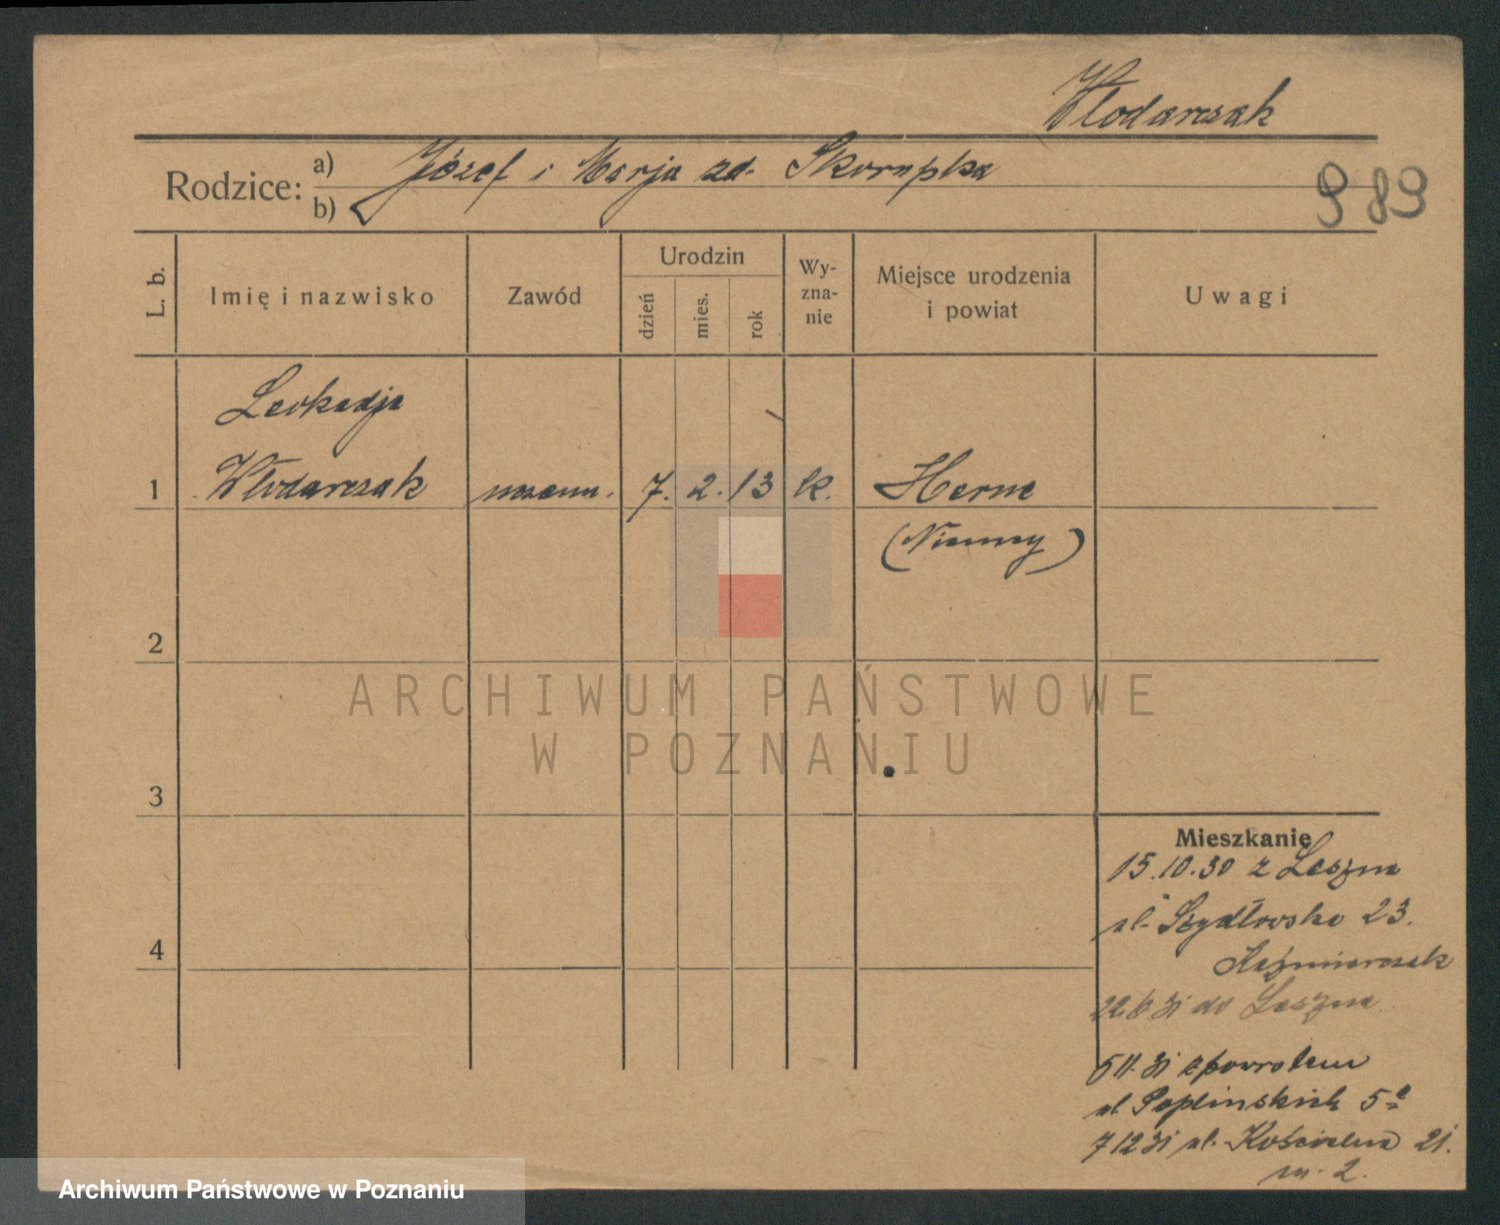 Włodarczak
Rodzice: a) Józef i Marja zd. Skorupka
b)
989
L. b.
Imię i nazwisko
Zawód
Urodzin
dzień
mies.
rok
Wy-
zna-
nie
Miejsce urodzenia
i powiat
Uwagi
Leokadja
1 Włodarczak uczenn. 7. 2. 13 k. Herne
(Niemcy)
2
ARCHIWUM PAŃSTWOWE
W POZNANIU
3
Mieszkanie
15.10.30 z Leszna
ul. Szydłowska 23.
Kaźmierczak
22 6 31 do Leszna
5 11. 31 z powrotem
ul. Poplińskich 5a
7 12 31 ul. Kościelna 21.
m. 2.
4
Archiwum Państwowe w Poznaniu